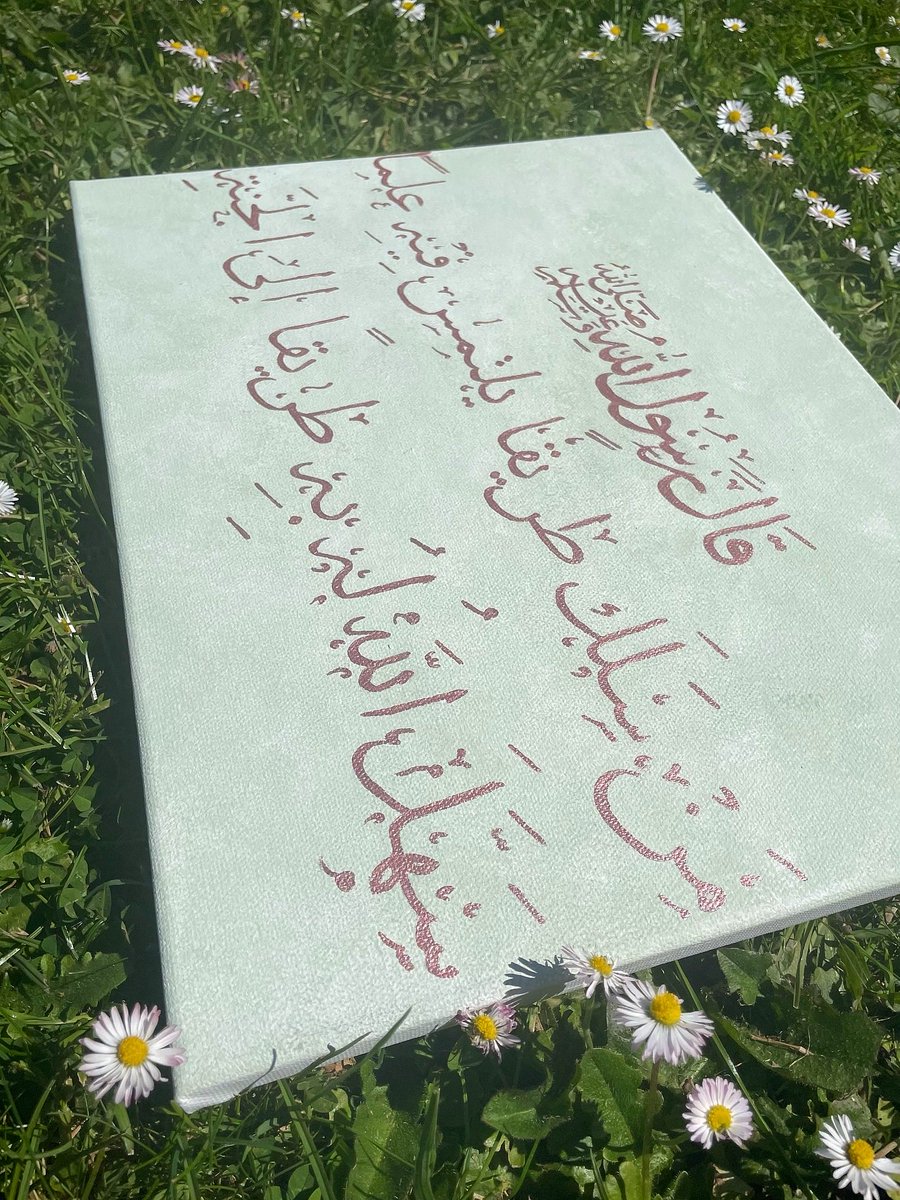 قَالَ رَسُولُ اللَّهِ صَلَّى اللَّهُ عَلَيْهِ وَسَلَّمَ
مَنْ سَلَكَ طَرِيقًا يَلْتَمِسُ فِيهِ عِلْمًا
سَهَّلَ اللَّهُ لَهُ بِهِ طَرِيقًا إِلَى الْجَنَّةِ